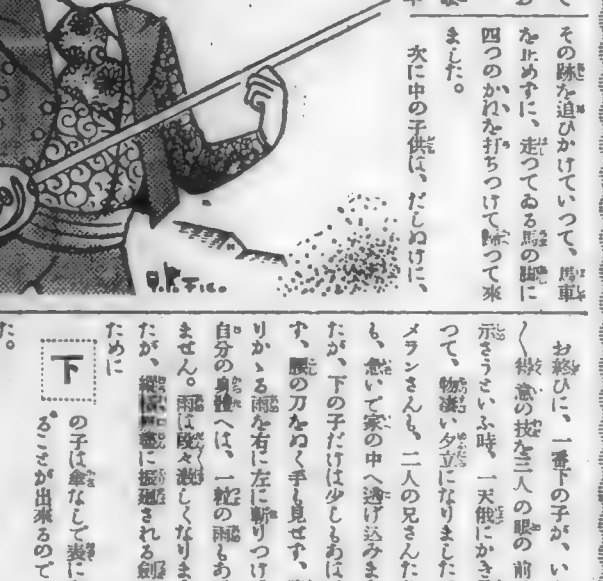 その跡を追ひかけていつて、馬車
を止めずに、走つてゐる馬の脚に
四つのかねを打ちつけて歸つて來
ました。
次に中の子供は、だしぬけに、
お終ひに、一番下の子が、い
得意の技を三人の眼の前
示さうといふ時、一天俄にかき
つて、物凄い夕立になりました
メランさんも、二人の兄さんた
も、急いで家の中へ逃げ込みま
たが、下の子だけは少しもあは
ず、腰の刀をぬく手も見せず、
りかゝる雨を右に左に斬りつけ
自分の身體へは、一粒の雨もあ
ません。雨は段々激しくなりま
たが、縱横無盡に振廻される劍
ために
下
の子は傘なしで裏に
ることが出來るので
す。